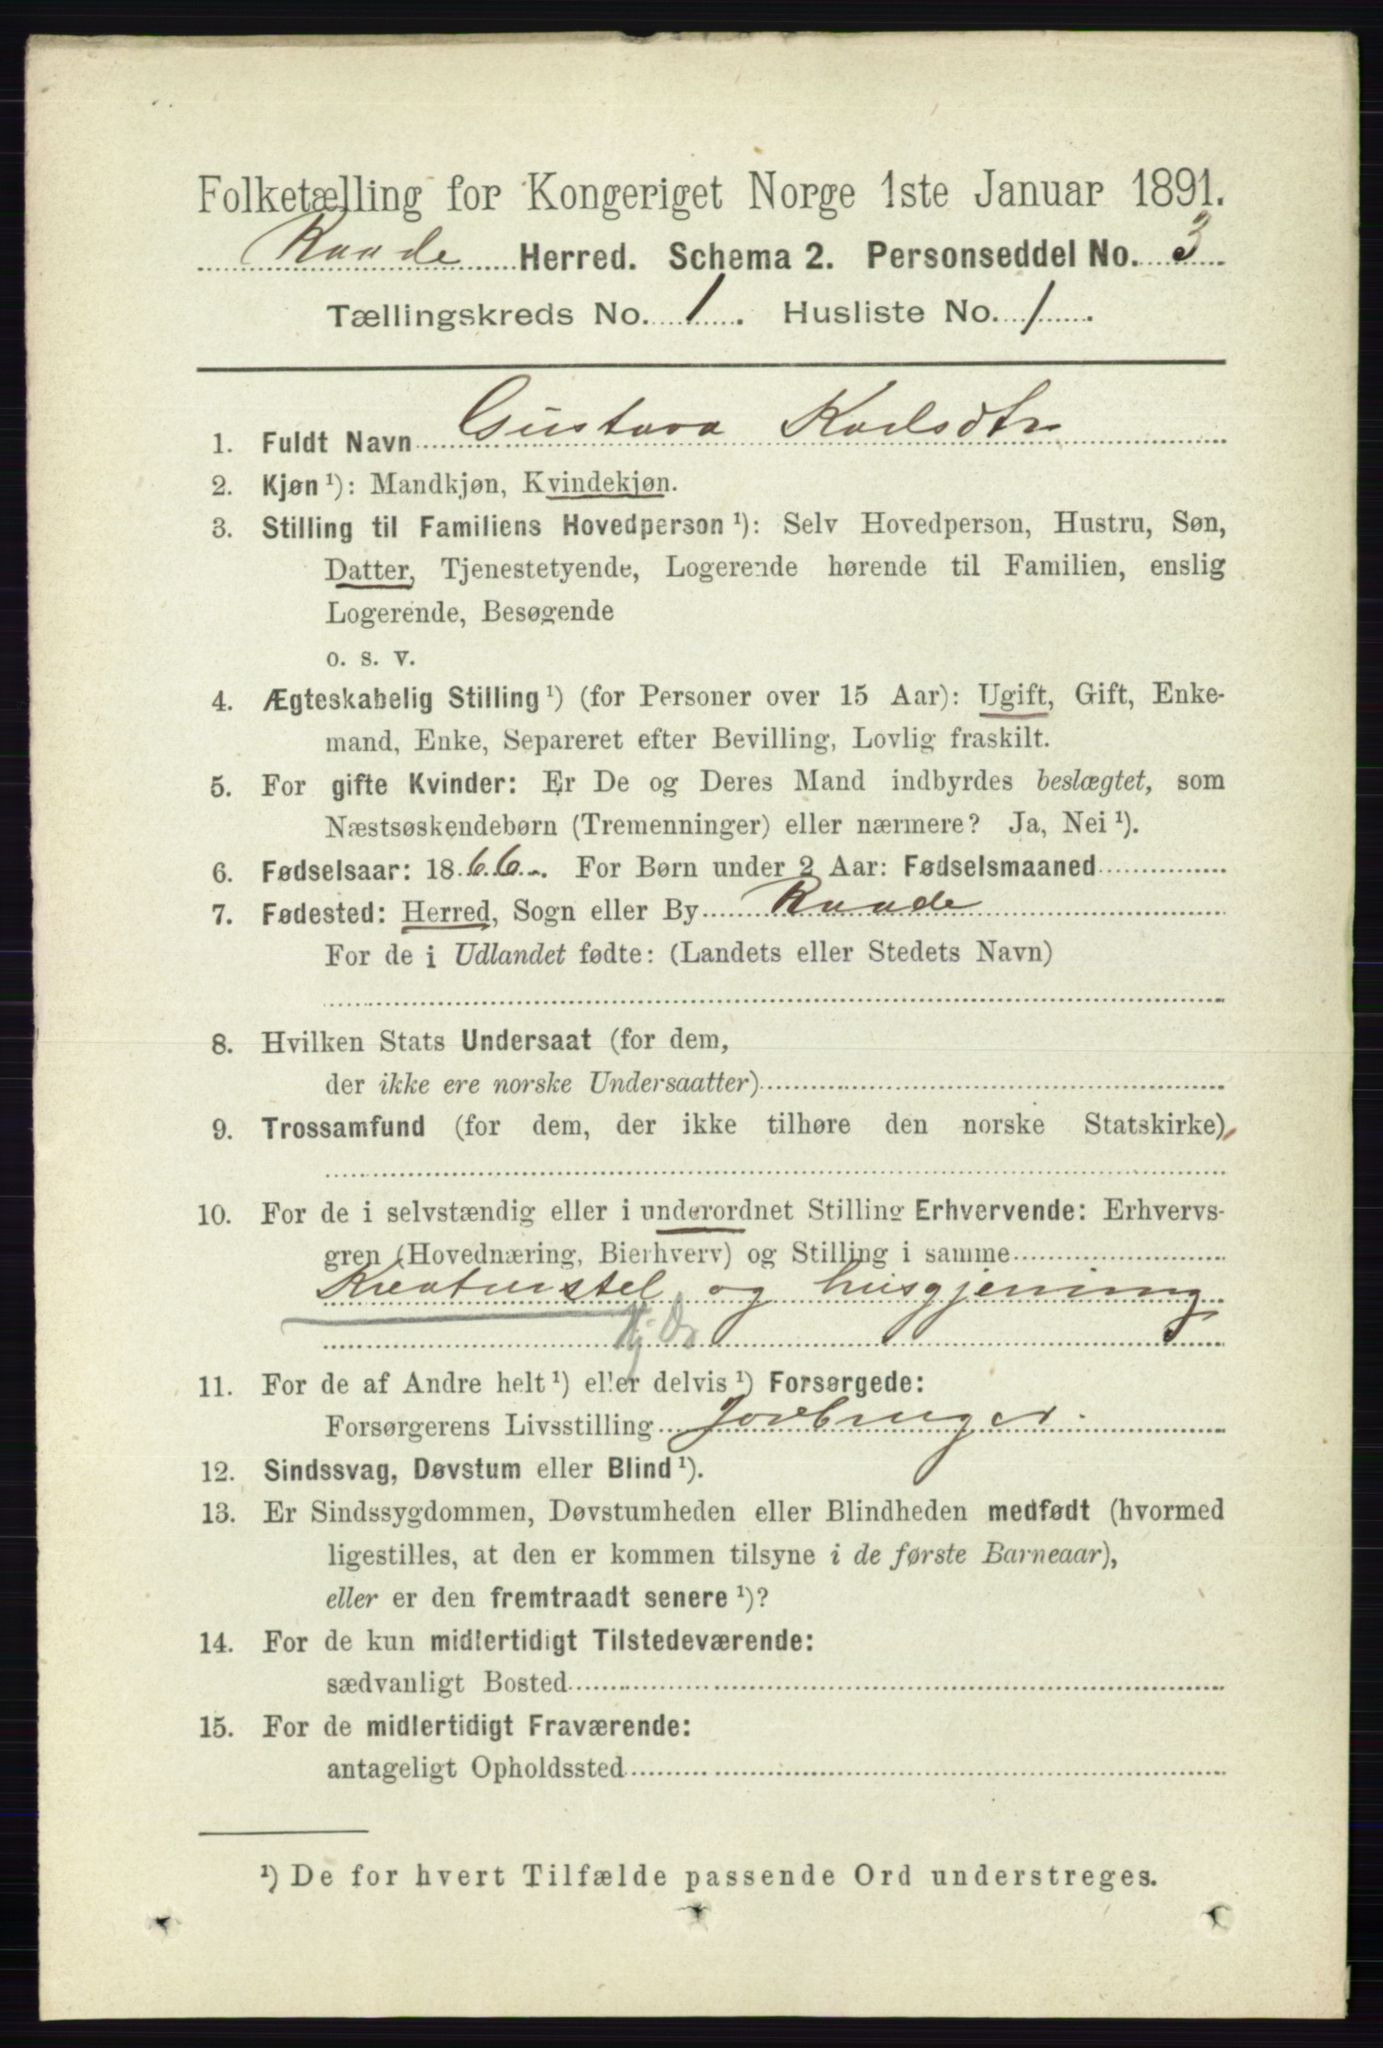 Folketælling for Kongeriget Norge 1ste Januar 1891.
Raade Herred. Schema 2. Personseddel No. 3
Tællingskreds No. 1. Husliste No. 1
1. Fuldt Navn Gustava Karlsdtr
2. Kjøn ¹): Mandkjøn, Kvindekjøn.
3. Stilling til Familiens Hovedperson ¹): Selv Hovedperson, Hustru, Søn,
Datter, Tjenestetyende, Logerende hørende til Familien, enslig
Logerende, Besøgende
o. s. v.
4. Ægteskabelig Stilling ¹) (for Personer over 15 Aar): Ugift, Gift, Enke-
mand, Enke, Separeret efter Bevilling, Lovlig fraskilt.
5. For gifte Kvinder: Er De og Deres Mand indbyrdes beslægtet, som
Næstsøskendebørn (Tremenninger) eller nærmere? Ja, Nei ¹).
6. Fødselsaar: 1866. For Børn under 2 Aar: Fødselsmaaned
7. Fødested: Herred, Sogn eller By Raade
For de i Udlandet fødte: (Landets eller Stedets Navn)
8. Hvilken Stats Undersaat (for dem,
der ikke ere norske Undersaatter)
9. Trossamfund (for dem, der ikke tilhøre den norske Statskirke)
10. For de i selvstændig eller i underordnet Stilling Erhvervende: Erhvervs-
gren (Hovednæring, Bierhverv) og Stilling i samme
Kreaturstel og husgjerning
11. For de af Andre helt ¹) eller delvis ¹) Forsørgede:
Forsørgerens Livsstilling Jordbruger.
12. Sindssvag, Døvstum eller Blind ¹).
13. Er Sindssygdommen, Døvstumheden eller Blindheden medfødt (hvormed
ligestilles, at den er kommen tilsyne i de første Barneaar),
eller er den fremtraadt senere ¹)?
14. For de kun midlertidigt Tilstedeværende:
sædvanligt Bosted
15. For de midlertidigt Fraværende:
antageligt Opholdssted
¹) De for hvert Tilfælde passende Ord understreges.